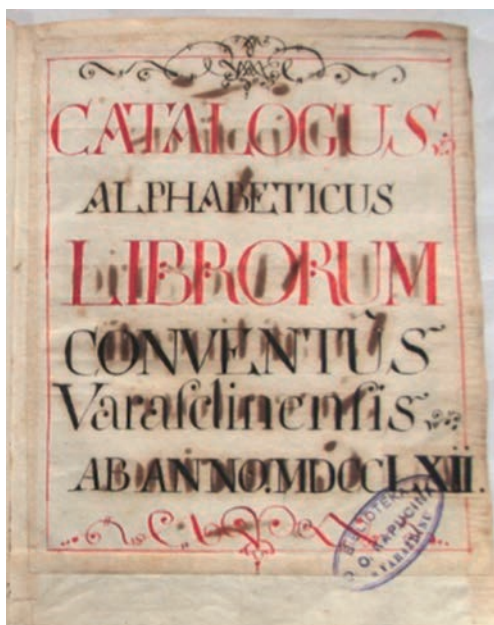 CATALOGUS
ALPHABETICUS
LIBRORUM
CONVENTÙS
Varasdinensis
AB ANNO.MDCCLXII.
BIBLIOTEKA
O. O. KAPUCINA
VARAŽDINU